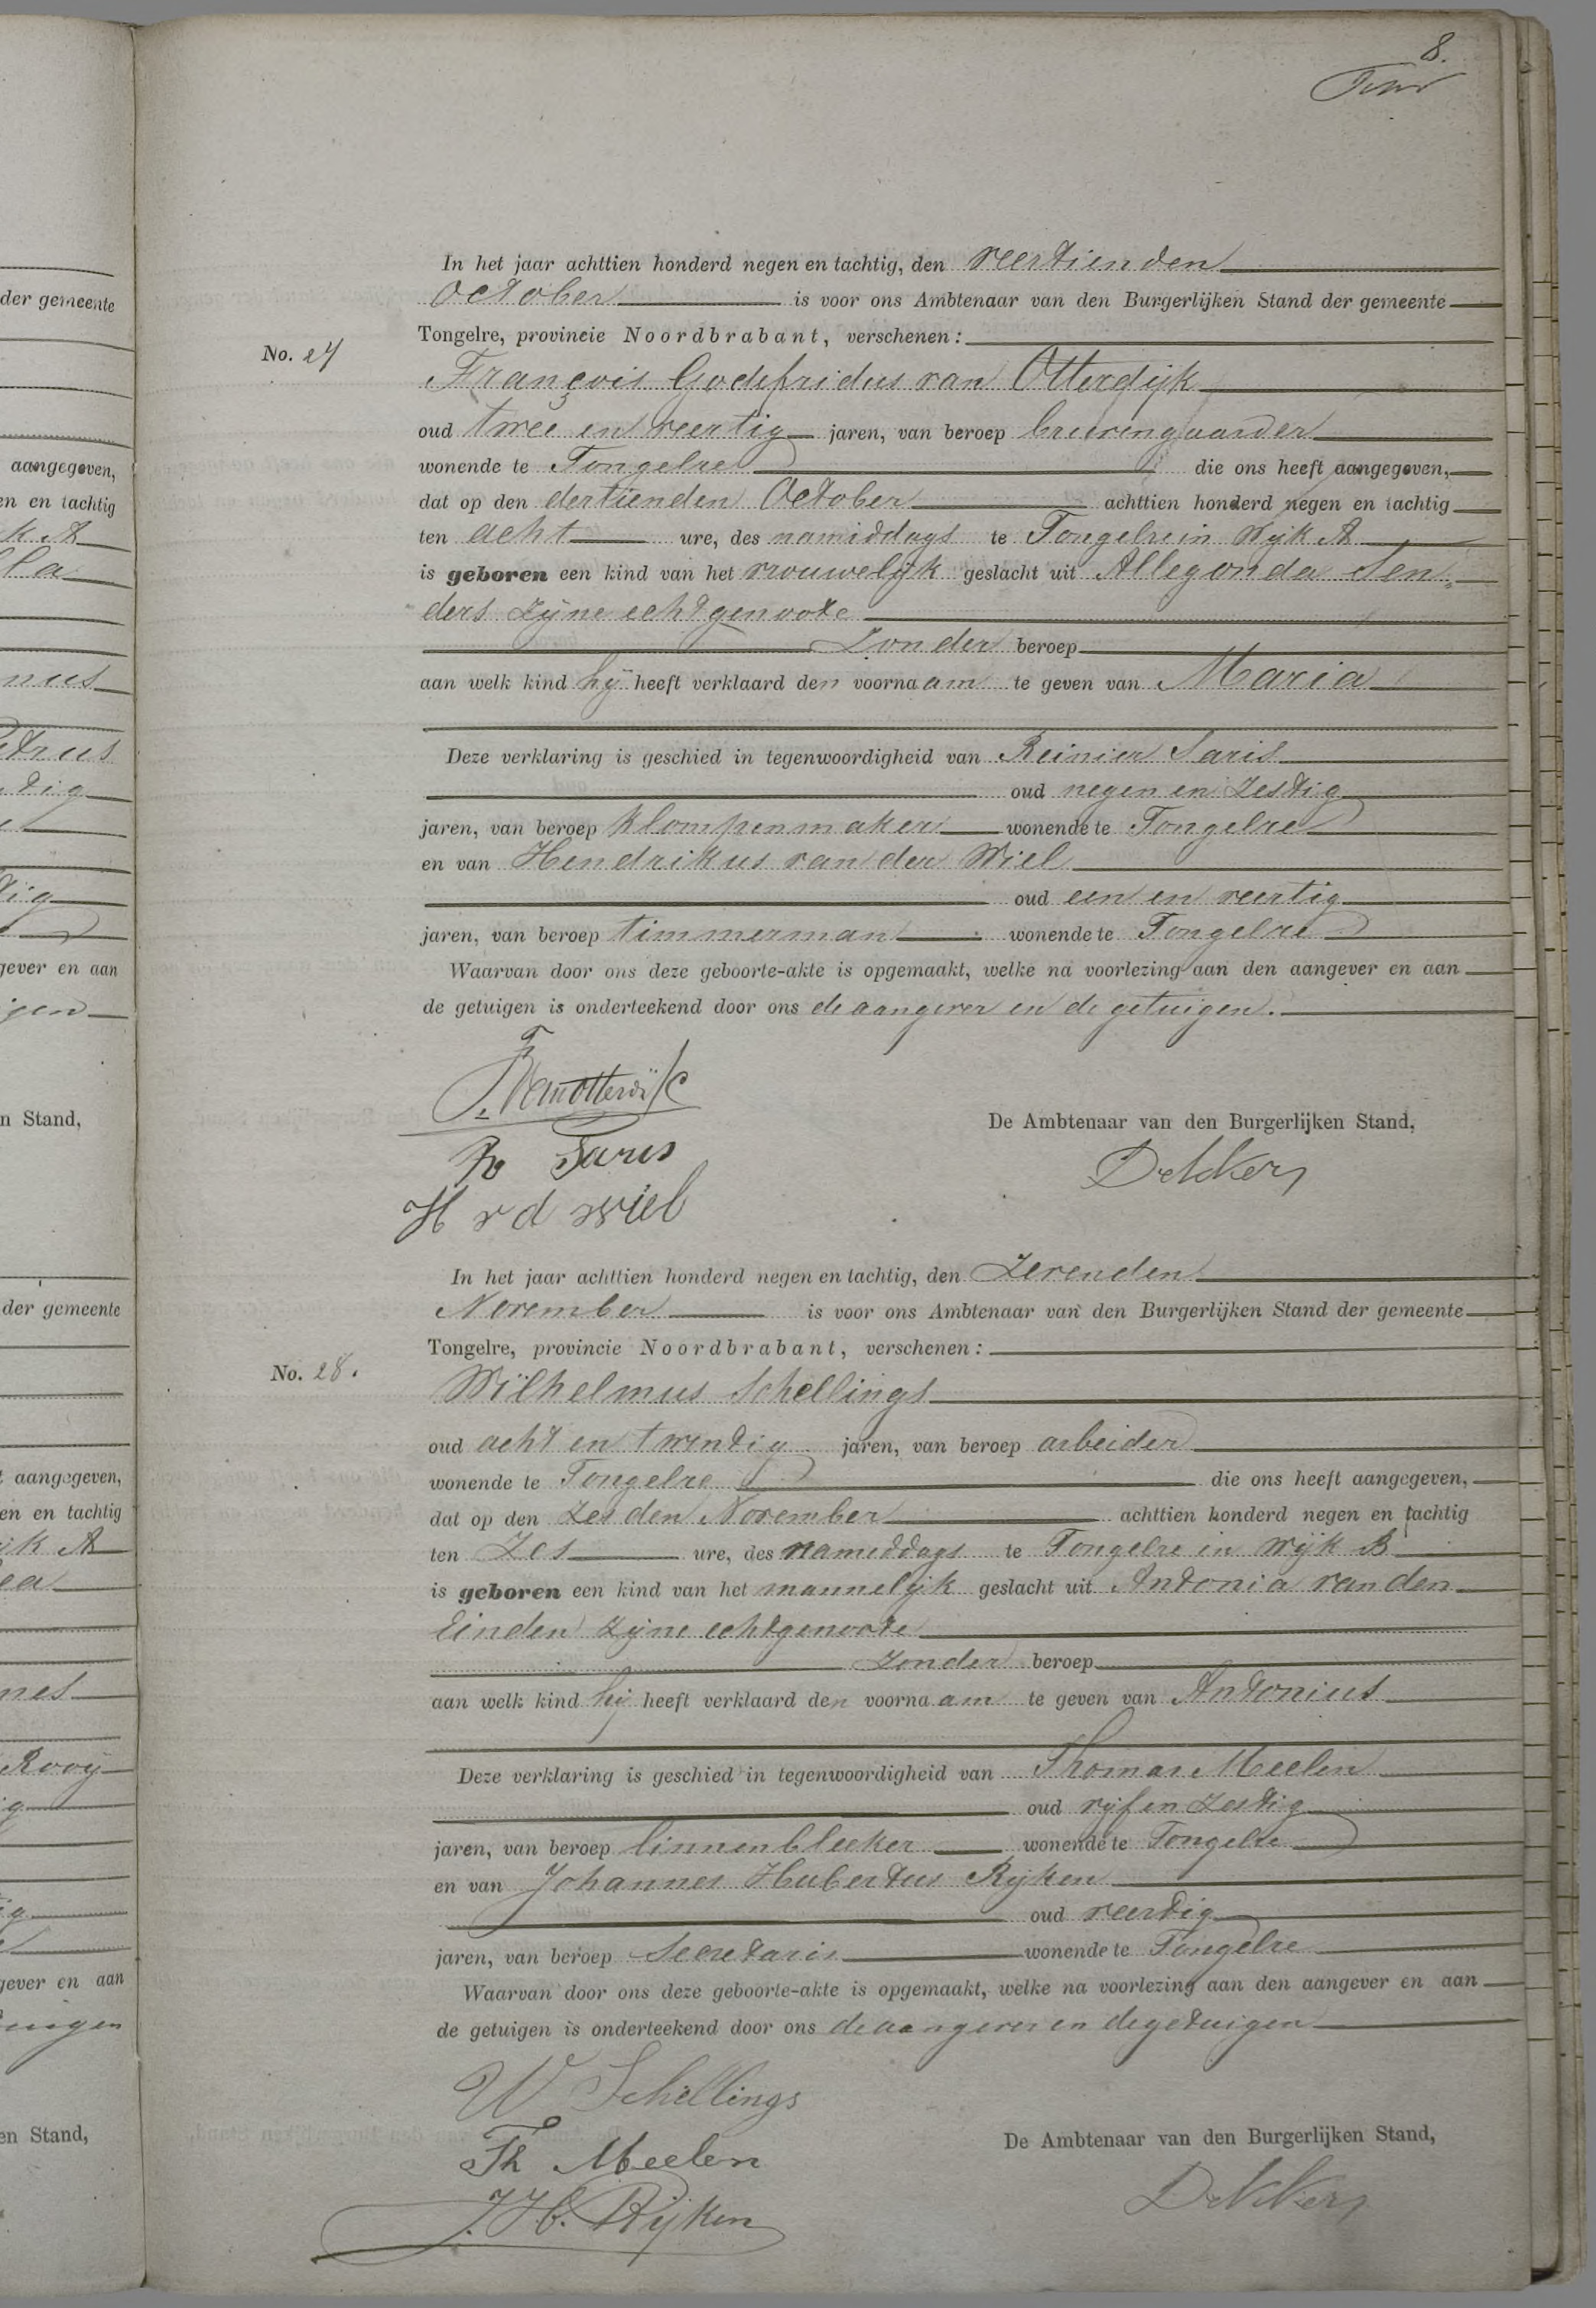 8.
In het jaar achttien honderd negen en tachtig, den veertienden
October is voor ons Ambtenaar van den Burgerlijken Stand der gemeente
Tongelre, provincie Noordbrabant, verschenen:
No. 27
François Godefridus van Otterdijk
oud twee en veertig jaren, van beroep
wonende te Tongelre die ons heeft aangegeven,
dat op den dertienden October achttien honderd negen en tachtig
ten acht ure, des namiddags te Tongelre in Wijk A
is geboren een kind van het vrouwelijk geslacht uit Allegonda Sen„
ders zijne echtgenoote
Zonder beroep
aan welk kind hij heeft verklaard den voornaam te geven van Maria
Deze verklaring is geschied in tegenwoordigheid van Reinier Saris
oud negen en Zestig
jaren, van beroep klompenmaker wonende te Tongelre
en van Hendrikus van der Wiel
oud een en veertig
jaren, van beroep timmerman wonende te Tongelre
Waarvan door ons deze geboorte-akte is opgemaakt, welke na voorlezing aan den aangever en aan
de getuigen is onderteekend door ons de aangever en de getuigen.
De Ambtenaar van den Burgerlijken Stand,
R Saris
Dekkers
H v d Wiel
In het jaar achttien honderd negen en tachtig, den Zevenden
November is voor ons Ambtenaar van den Burgerlijken Stand der gemeente
Tongelre, provincie Noordbrabant, verschenen:
No. 28.
Wilhelmus Schellings
oud acht en twintig jaren, van beroep arbeider
wonende te Tongelre die ons heeft aangegeven,
dat op den Zesden November achttien honderd negen en tachtig
ten Zes ure, des namiddags te Tongelre in Wijk B
is geboren een kind van het mannelijk geslacht uit Antonia van den
Einden zijne echtgenoote
Zonder beroep
aan welk kind hij heeft verklaard den voornaam te geven van Antonius
Deze verklaring is geschied in tegenwoordigheid van Thomas Meelen
oud vijf en Zestig
jaren, van beroep linnenbleeker wonende te Tongelre
en van Johannes Hubertus Rijken
oud veertig
jaren, van beroep Secretaris wonende te Tongelre
Waarvan door ons deze geboorte-akte is opgemaakt, welke na voorlezing aan den aangever en aan
de getuigen is onderteekend door ons de aangever en de getuigen
W Schellings
Th Meelen
De Ambtenaar van den Burgerlijken Stand,
J. H. Rijken
Dekkers